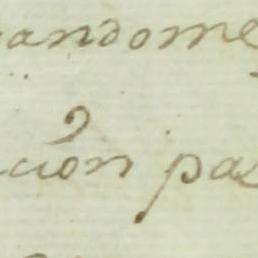 andome
cion pas